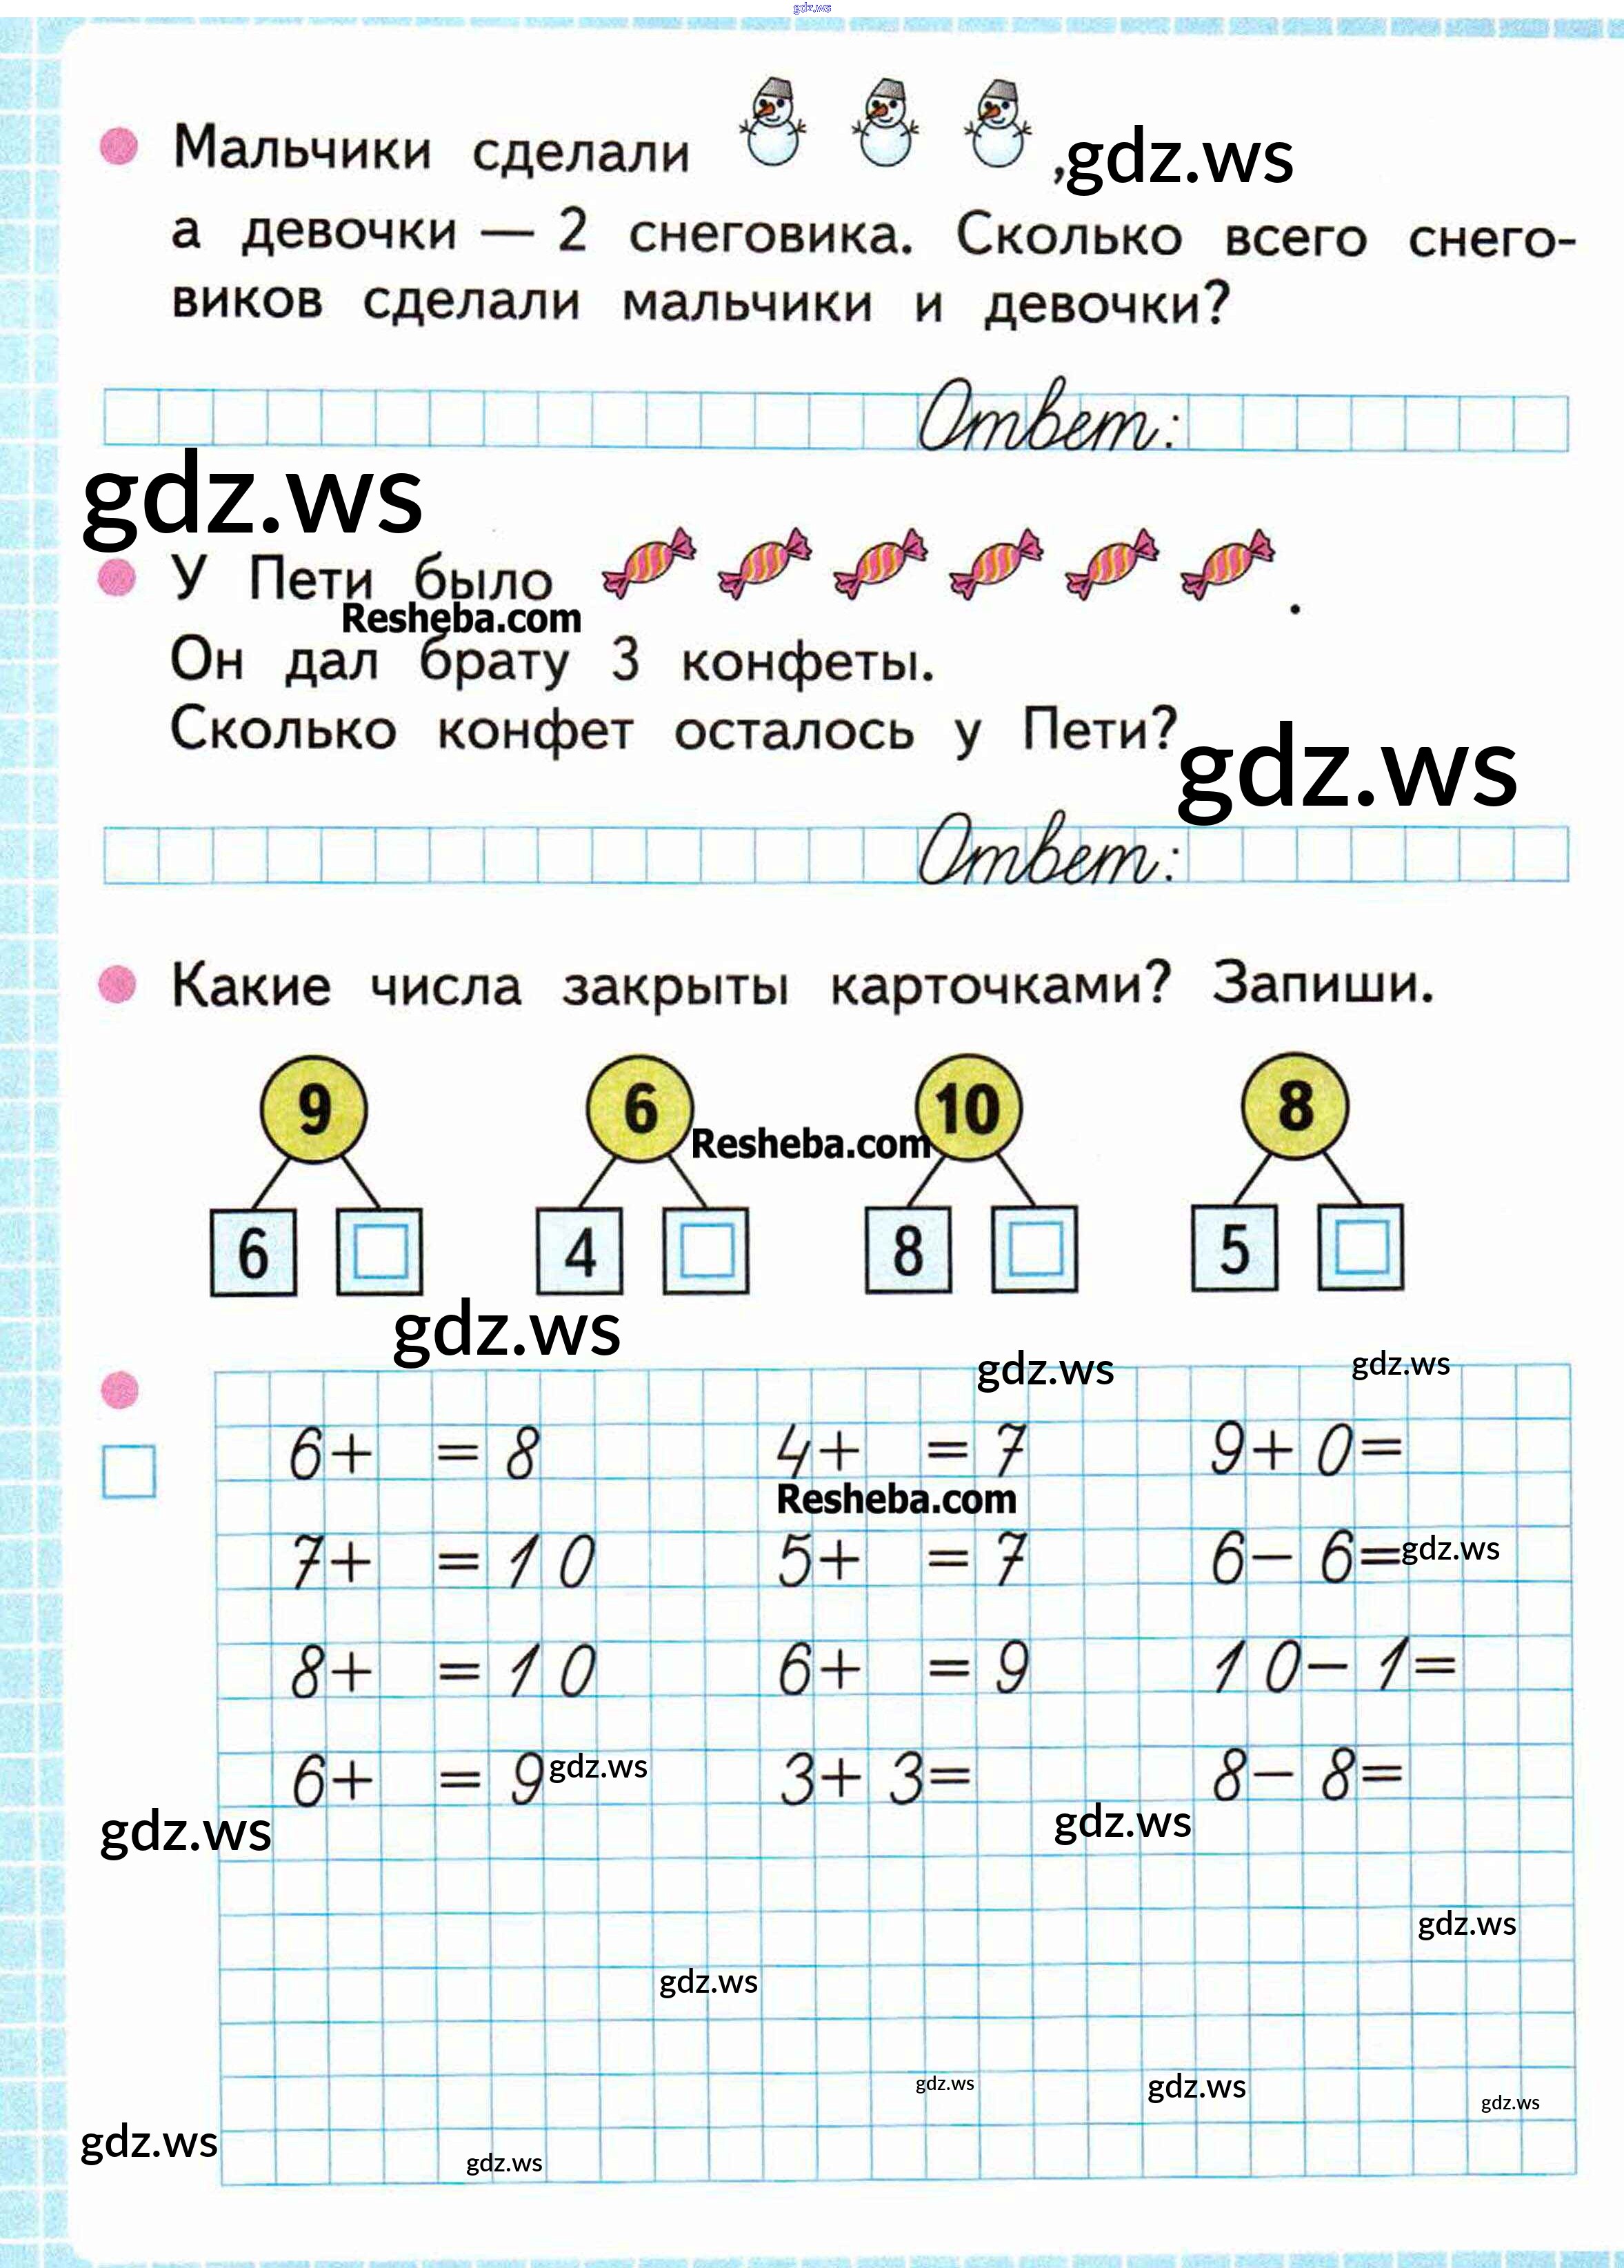 gdz.ws
Мальчики сделали , gdz.ws
а девочки — 2 снеговика. Сколько всего снего-
виков сделали мальчики и девочки?
Ответ:
gdz.ws
У Пети было .
Resheba.com
Он дал брату 3 конфеты.
Сколько конфет осталось у Пети?
gdz.ws
Ответ:
Какие числа закрыты карточками? Запиши.
9 6 10 8
Resheba.com
6 4 8 5
gdz.ws
gdz.ws gdz.ws
6+ =8 4+ =7 9+0=
Resheba.com
7+ =10 5+ =7 6-6= gdz.ws
8+ =10 6+ =9 10-1=
6+ =9 gdz.ws 3+3= 8-8=
gdz.ws gdz.ws
gdz.ws
gdz.ws
gdz.ws gdz.ws gdz.ws
gdz.ws gdz.ws